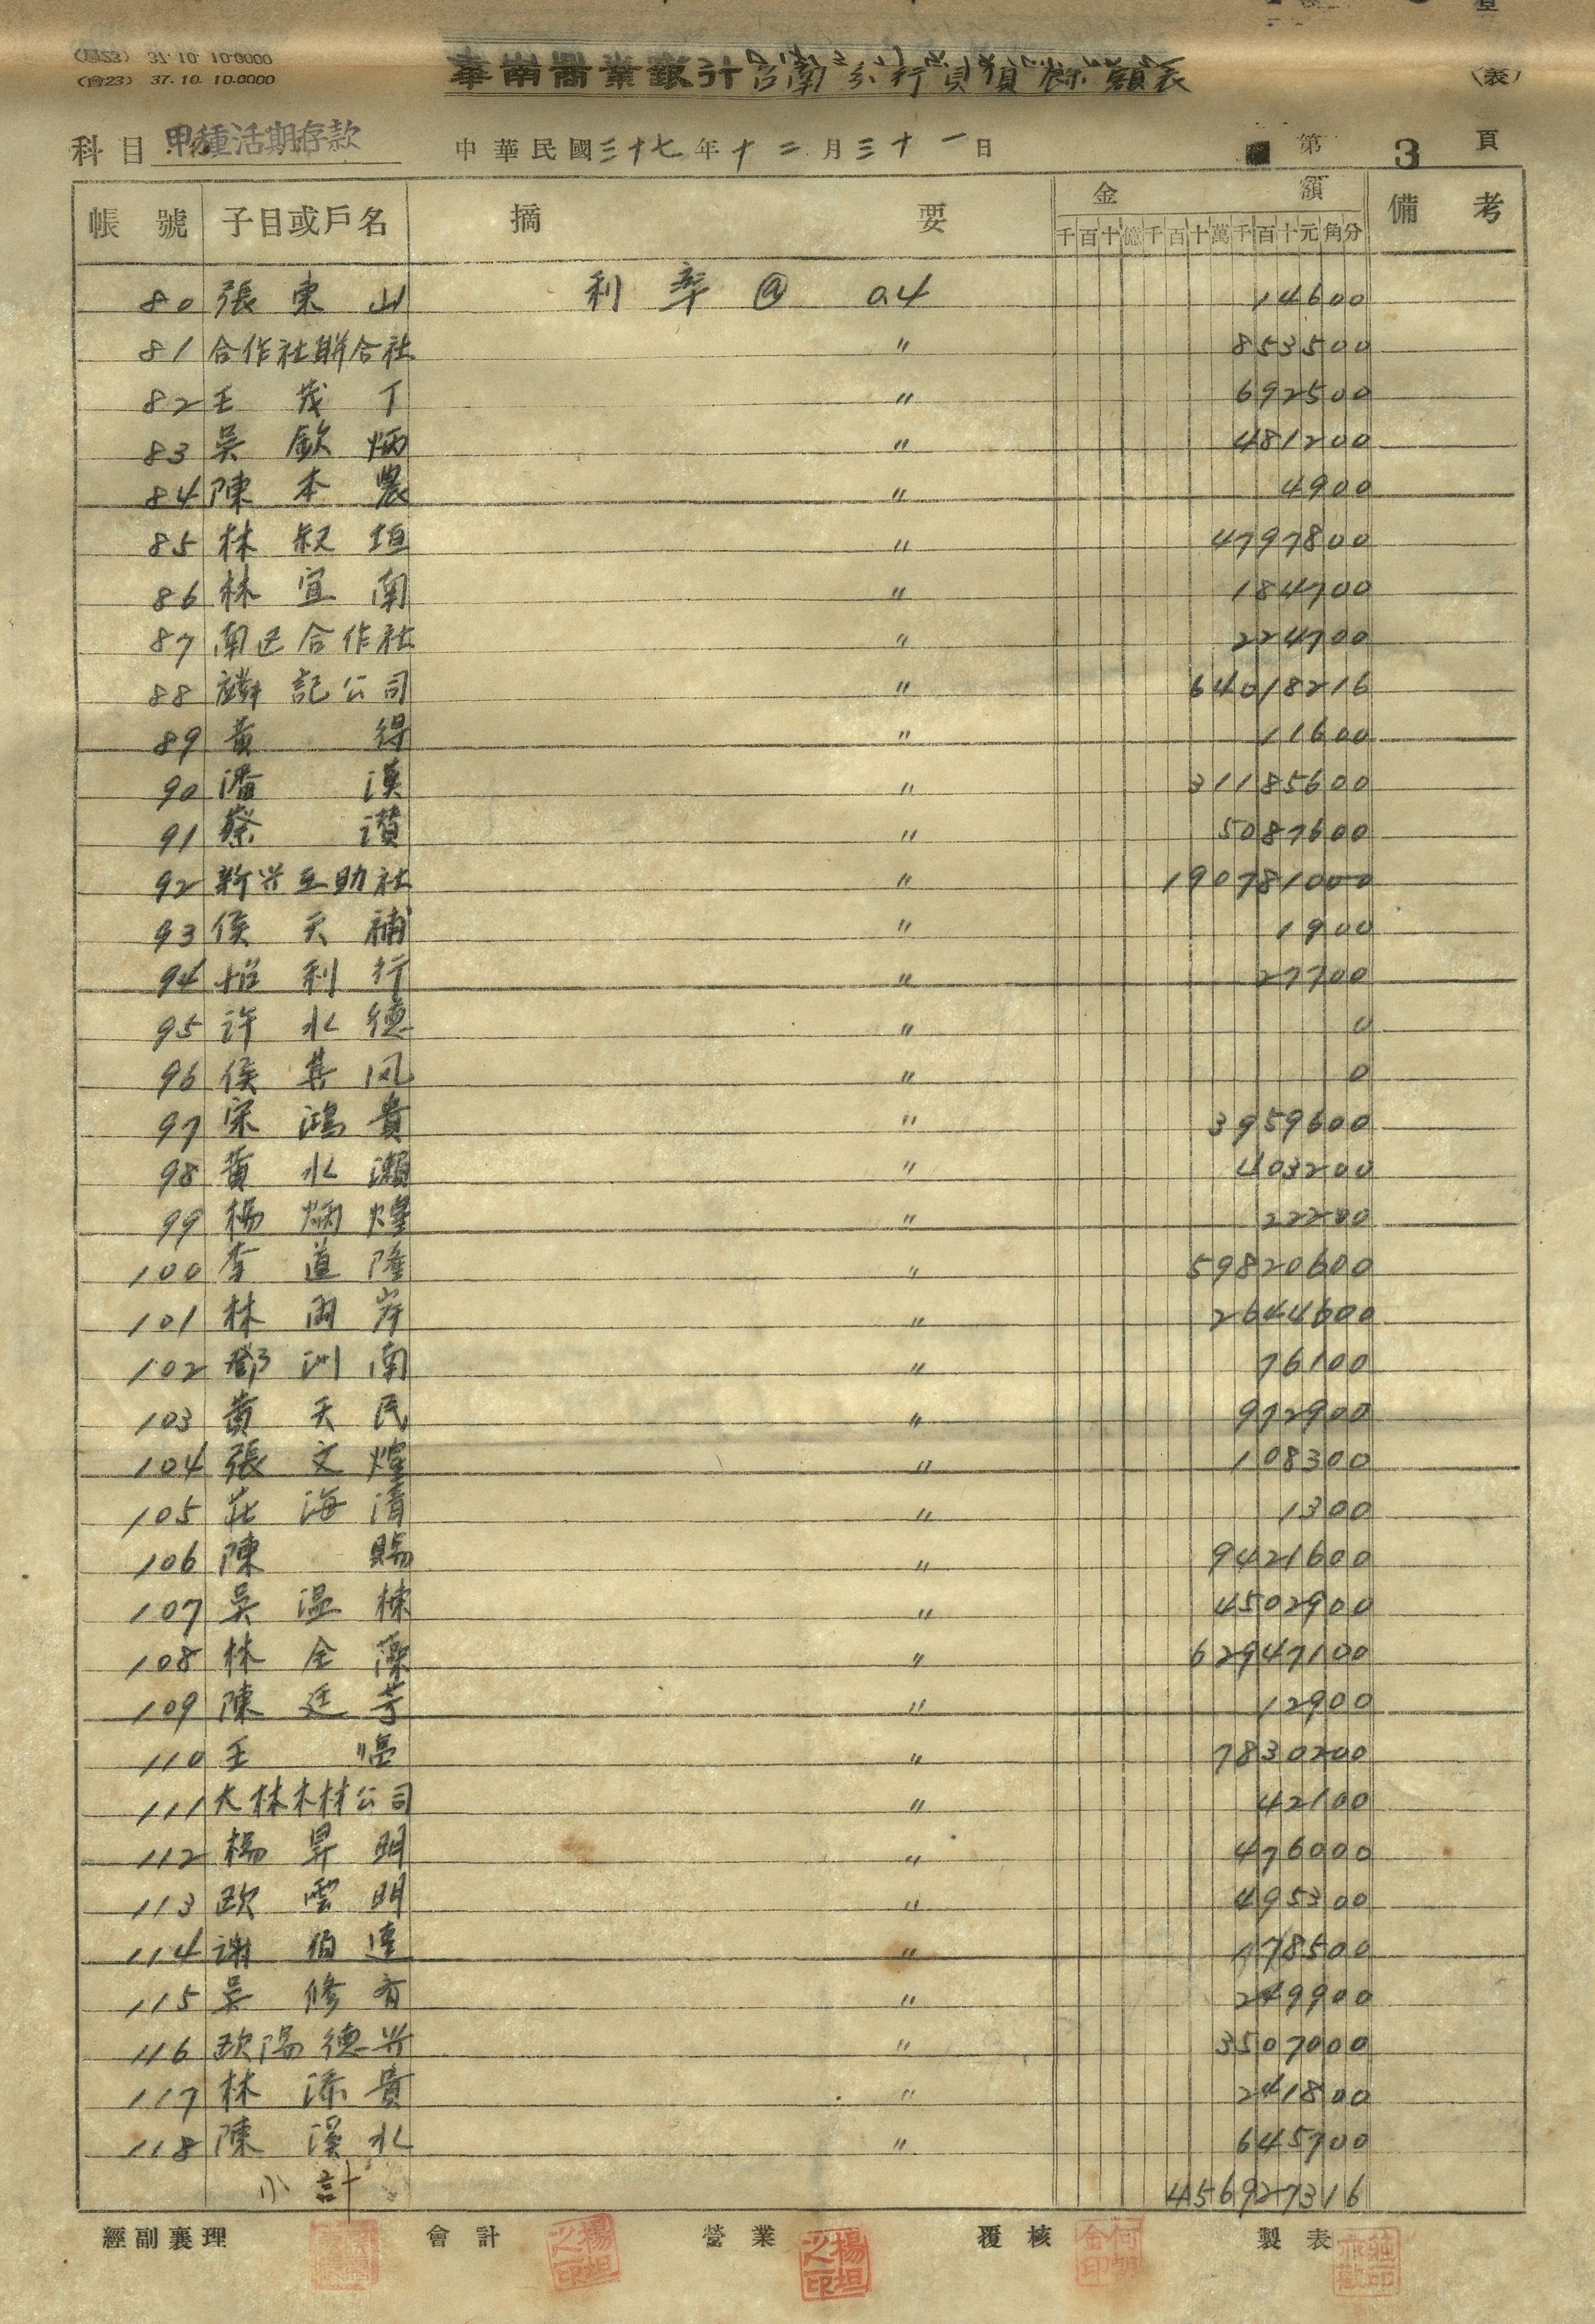 (會23) 37.10.10.0000
華南商業銀行台南分行負債餘額表
(表)
科目 甲種活期存款 中華民國三十七年十二月三十一日 第 3 頁
帳號 子目或戶名 摘要 金額 備考
千百十億千百十萬千百十元角分
80 張東山 利率@ 0.4 14600
81 合作社聯合社 〃 853500
82 王茂丁 〃 692500
83 吳欽炳 〃 481200
84 陳本農 〃 4900
85 林叔垣 〃 4797800
86 林宜南 〃 184700
87 南区合作社 〃 224700
88 麟記公司 〃 64018216
89 黃得 〃 11600
90 潘漢 〃 31185600
91 蔡讚 〃 5087600
92 新兴互助社 〃 190781000
93 侯天補 〃 1900
94 利行 〃 27700
95 许水德 〃 0
96 侯其风 〃 0
97 宋鴻貴 〃 3959600
98 黃水瀨 〃 403200
99 楊炳煌 〃 22200
100 李道隆 〃 59820600
101 林岸 〃 2644600
102 鄧洲南 〃 76100
103 黃天民 〃 972900
104 張文煌 〃 108300
105 莊海清 〃 1300
106 陳賜 〃 9421600
107 吳温棟 〃 4502900
108 林全藻 〃 62947100
109 陳廷芳 〃 12900
110 王 〃 7830200
111 大林木材公司 〃 42100
112 楊昇明 〃 476000
113 欧雲明 〃 495300
114 謝伯達 〃 178500
115 吳修有 〃 249900
116 欧陽德兴 〃 3507000
117 林添貴 〃 241800
118 陳溪水 〃 645700
小計 456927316
經副襄理 會計 營業 覆核 製表
楊坦之印
楊坦之印
何朝金印